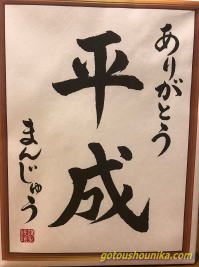 ありがとう
平成
まんじゅう
gotoushounika.com